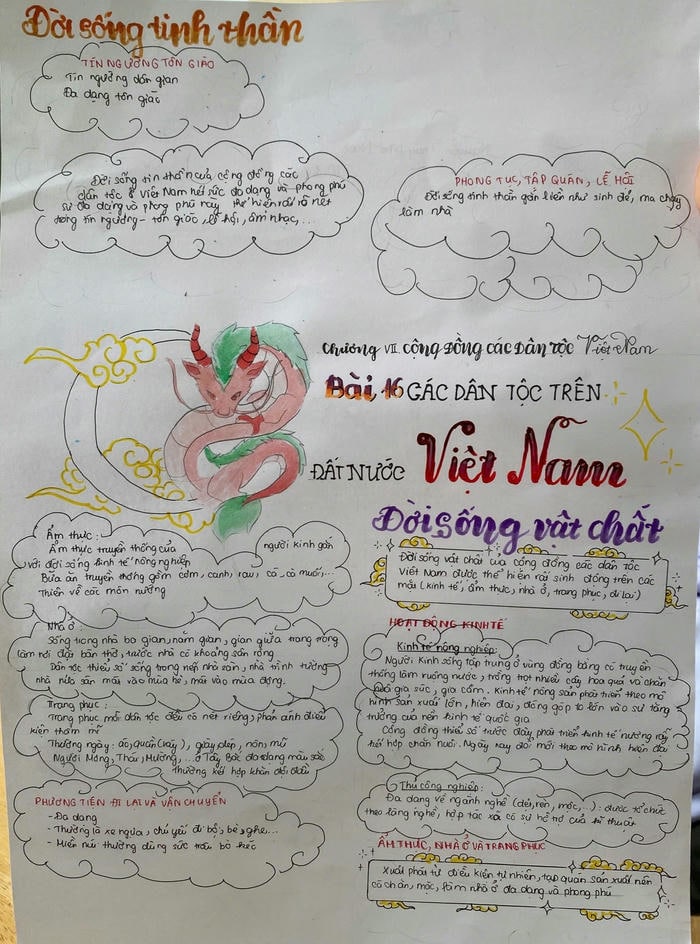 Đời sống tinh thần
TÍN NGƯỠNG TÔN GIÁO
Tín ngưỡng dân gian
Đa dạng tôn giáo
Đời sống tin thần của cộng đồng các
dân tộc ở Việt Nam hết sức đa dạng và phong phú
sự đa dạng và phong phú này thể hiện rất rõ nét
trong tín ngưỡng - tôn giáo, lễ hội, âm nhạc,...
PHONG TỤC, TẬP QUÁN, LỄ HỘI
Đời sống tinh thần gắn liền như sinh đẻ, ma chay
làm nhà
Chương VII. CỘNG ĐỒNG CÁC DÂN TỘC Việt Nam
Bài 16 CÁC DÂN TỘC TRÊN
ĐẤT NƯỚC Việt Nam
Đời sống vật chất
Ẩm thực:
Ẩm thực truyền thống của người kinh gắn
với đời sống kinh tế nông nghiệp
Bữa ăn truyền thống gồm cơm, canh, rau, cá, cà muối,...
Thiên về các món nướng
Nhà ở:
Sống trong nhà ba gian, năm gian, gian giữa trang trọng
làm nơi đặt bàn thờ, trước nhà có khoảng sân rộng
Dân tộc thiểu số sống trong nếp nhà sàn, nhà trình tường
nhà nửa sàn mát vào mùa hè, mát vào mùa đông.
Trang phục:
Trang phục mỗi dân tộc đều có nét riêng, phản ánh điều
kiện thẩm mĩ
Thường ngày: áo, quần (váy), giày dép, nón, mũ
Người Mông, Thái, Mường,... ở Tây Bắc đa dạng màu sắc
thường kết hợp khăn đội đầu
PHƯƠNG TIỆN ĐI LẠI VÀ VẬN CHUYỂN
- Đa dạng
- Thường là xe ngựa, chủ yếu đi bộ, bè, ghe...
- Miền núi thường dùng sức trâu bò kéo
Đời sống vật chất của cộng đồng các dân tộc
Việt Nam được thể hiện rất sinh động trên các
mặt (kinh tế, ẩm thực, nhà ở, trang phục, đi lại)
HOẠT ĐỘNG KINH TẾ
Kinh tế nông nghiệp:
Người Kinh sống tập trung ở vùng đồng bằng có truyền
thống làm ruộng nước, trồng trọt nhiều cây hoa quả và chăn
nuôi gia súc, gia cầm. Kinh tế nông sản phát triển theo mô
hình sản xuất lớn, hiện đại, đóng góp to lớn vào sự tăng
trưởng của nền kinh tế quốc gia
Cộng đồng thiểu số trước đây phát triển kinh tế nương rẫy
kết hợp chăn nuôi. Ngày nay đổi mới theo mô hình hiện đại
Thủ công nghiệp:
Đa dạng về ngành nghề (dệt, rèn, mộc,...): được tổ chức
theo làng nghề, hợp tác xã có sự hỗ trợ của kĩ thuật
ẨM THỰC, NHÀ Ở VÀ TRANG PHỤC
Xuất phát từ điều kiện tự nhiên, tập quán sản xuất nên
cách ăn, mặc, làm nhà ở đa dạng và phong phú